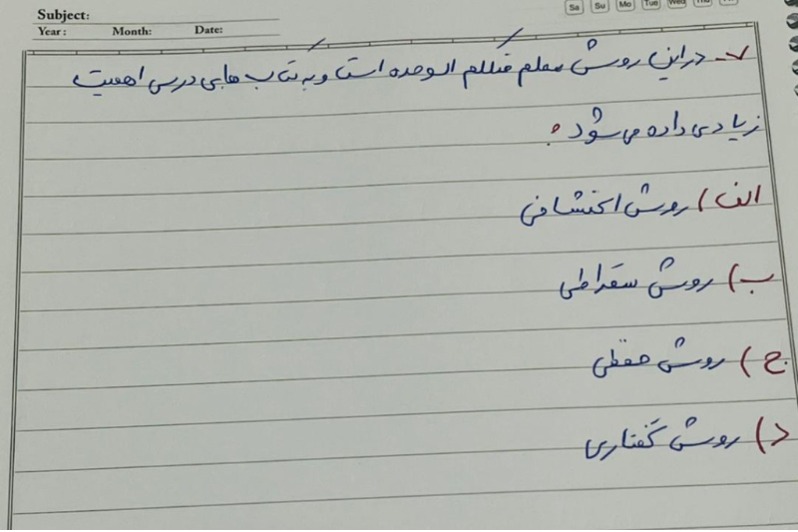 Subject:
Year: Month: Date:
Sa Su Mo Tue Wed Thu
۷- در این روش معلم متکلم الوحده است و به کتاب های درسی اهمیت
زیادی داده می شود؟
الف) روش اکتشافی
ب) روش سقراطی
ج) روش حفظی
د) روش گفتاری